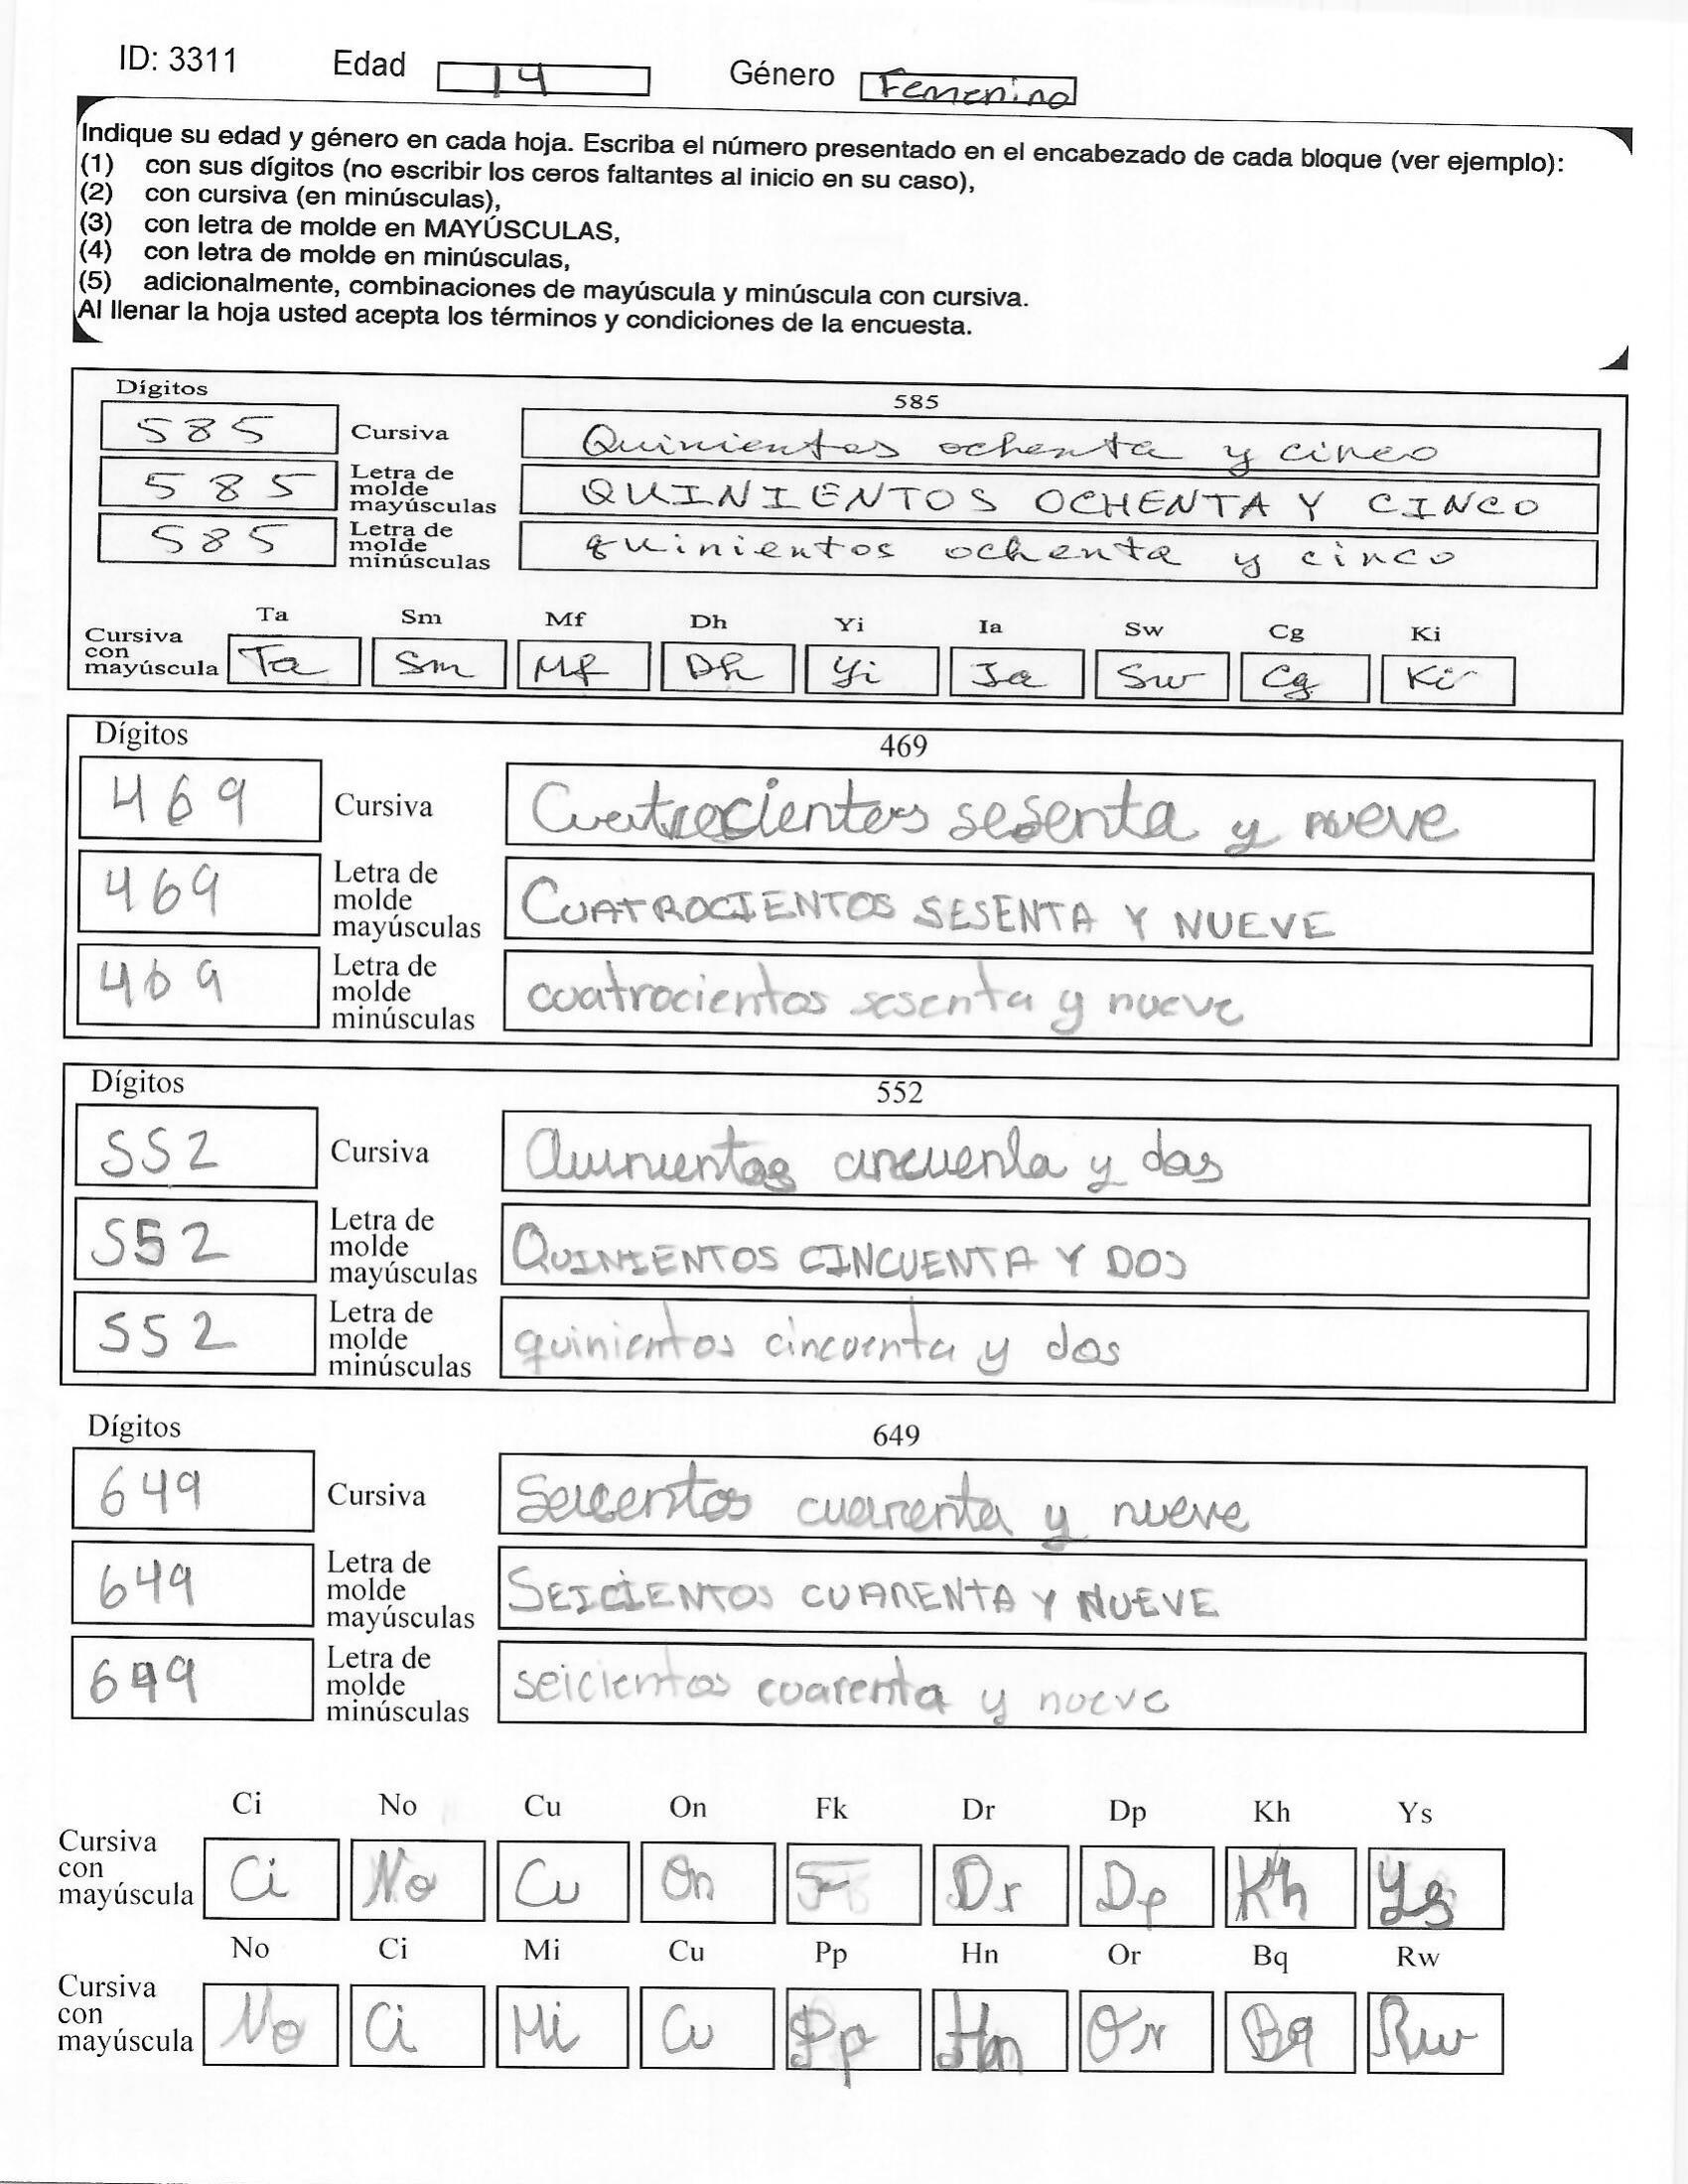 ID: 3311 Edad 14 Género Femenino
Indique su edad y género en cada hoja. Escriba el número presentado en el encabezado de cada bloque (ver ejemplo):
(1) con sus dígitos (no escribir los ceros faltantes al inicio en su caso),
(2) con cursiva (en minúsculas),
(3) con letra de molde en MAYÚSCULAS,
(4) con letra de molde en minúsculas,
(5) adicionalmente, combinaciones de mayúscula y minúscula con cursiva.
Al llenar la hoja usted acepta los términos y condiciones de la encuesta.
Dígitos 585
585 Cursiva Quinientos ochenta y cinco
585 Letra de molde mayúsculas QUINIENTOS OCHENTA Y CINCO
585 Letra de molde minúsculas quinientos ochenta y cinco
Ta Sm Mf Dh Yi Ia Sw Cg Ki
Cursiva con mayúscula Ta Sm Mf Dh Yi Ia Sw Cg Ki
Dígitos 469
469 Cursiva Cuatrocientos sesenta y nueve
469 Letra de molde mayúsculas CUATROCIENTOS SESENTA Y NUEVE
469 Letra de molde minúsculas cuatrocientos sesenta y nueve
Dígitos 552
552 Cursiva Quinientos cincuenta y dos
552 Letra de molde mayúsculas QUINIENTOS CINCUENTA Y DOS
552 Letra de molde minúsculas quinientos cincuenta y dos
Dígitos 649
649 Cursiva Seicentos cuarenta y nueve
649 Letra de molde mayúsculas SEICIENTOS CUARENTA Y NUEVE
649 Letra de molde minúsculas seicientos cuarenta y nueve
Ci No Cu On Fk Dr Dp Kh Ys
Cursiva con mayúscula Ci No Cu On Dr Dp Kh Ys
No Ci Mi Cu Pp Hn Or Bq Rw
Cursiva con mayúscula No Ci Mi Cu Pp Hn Or Bq Rw